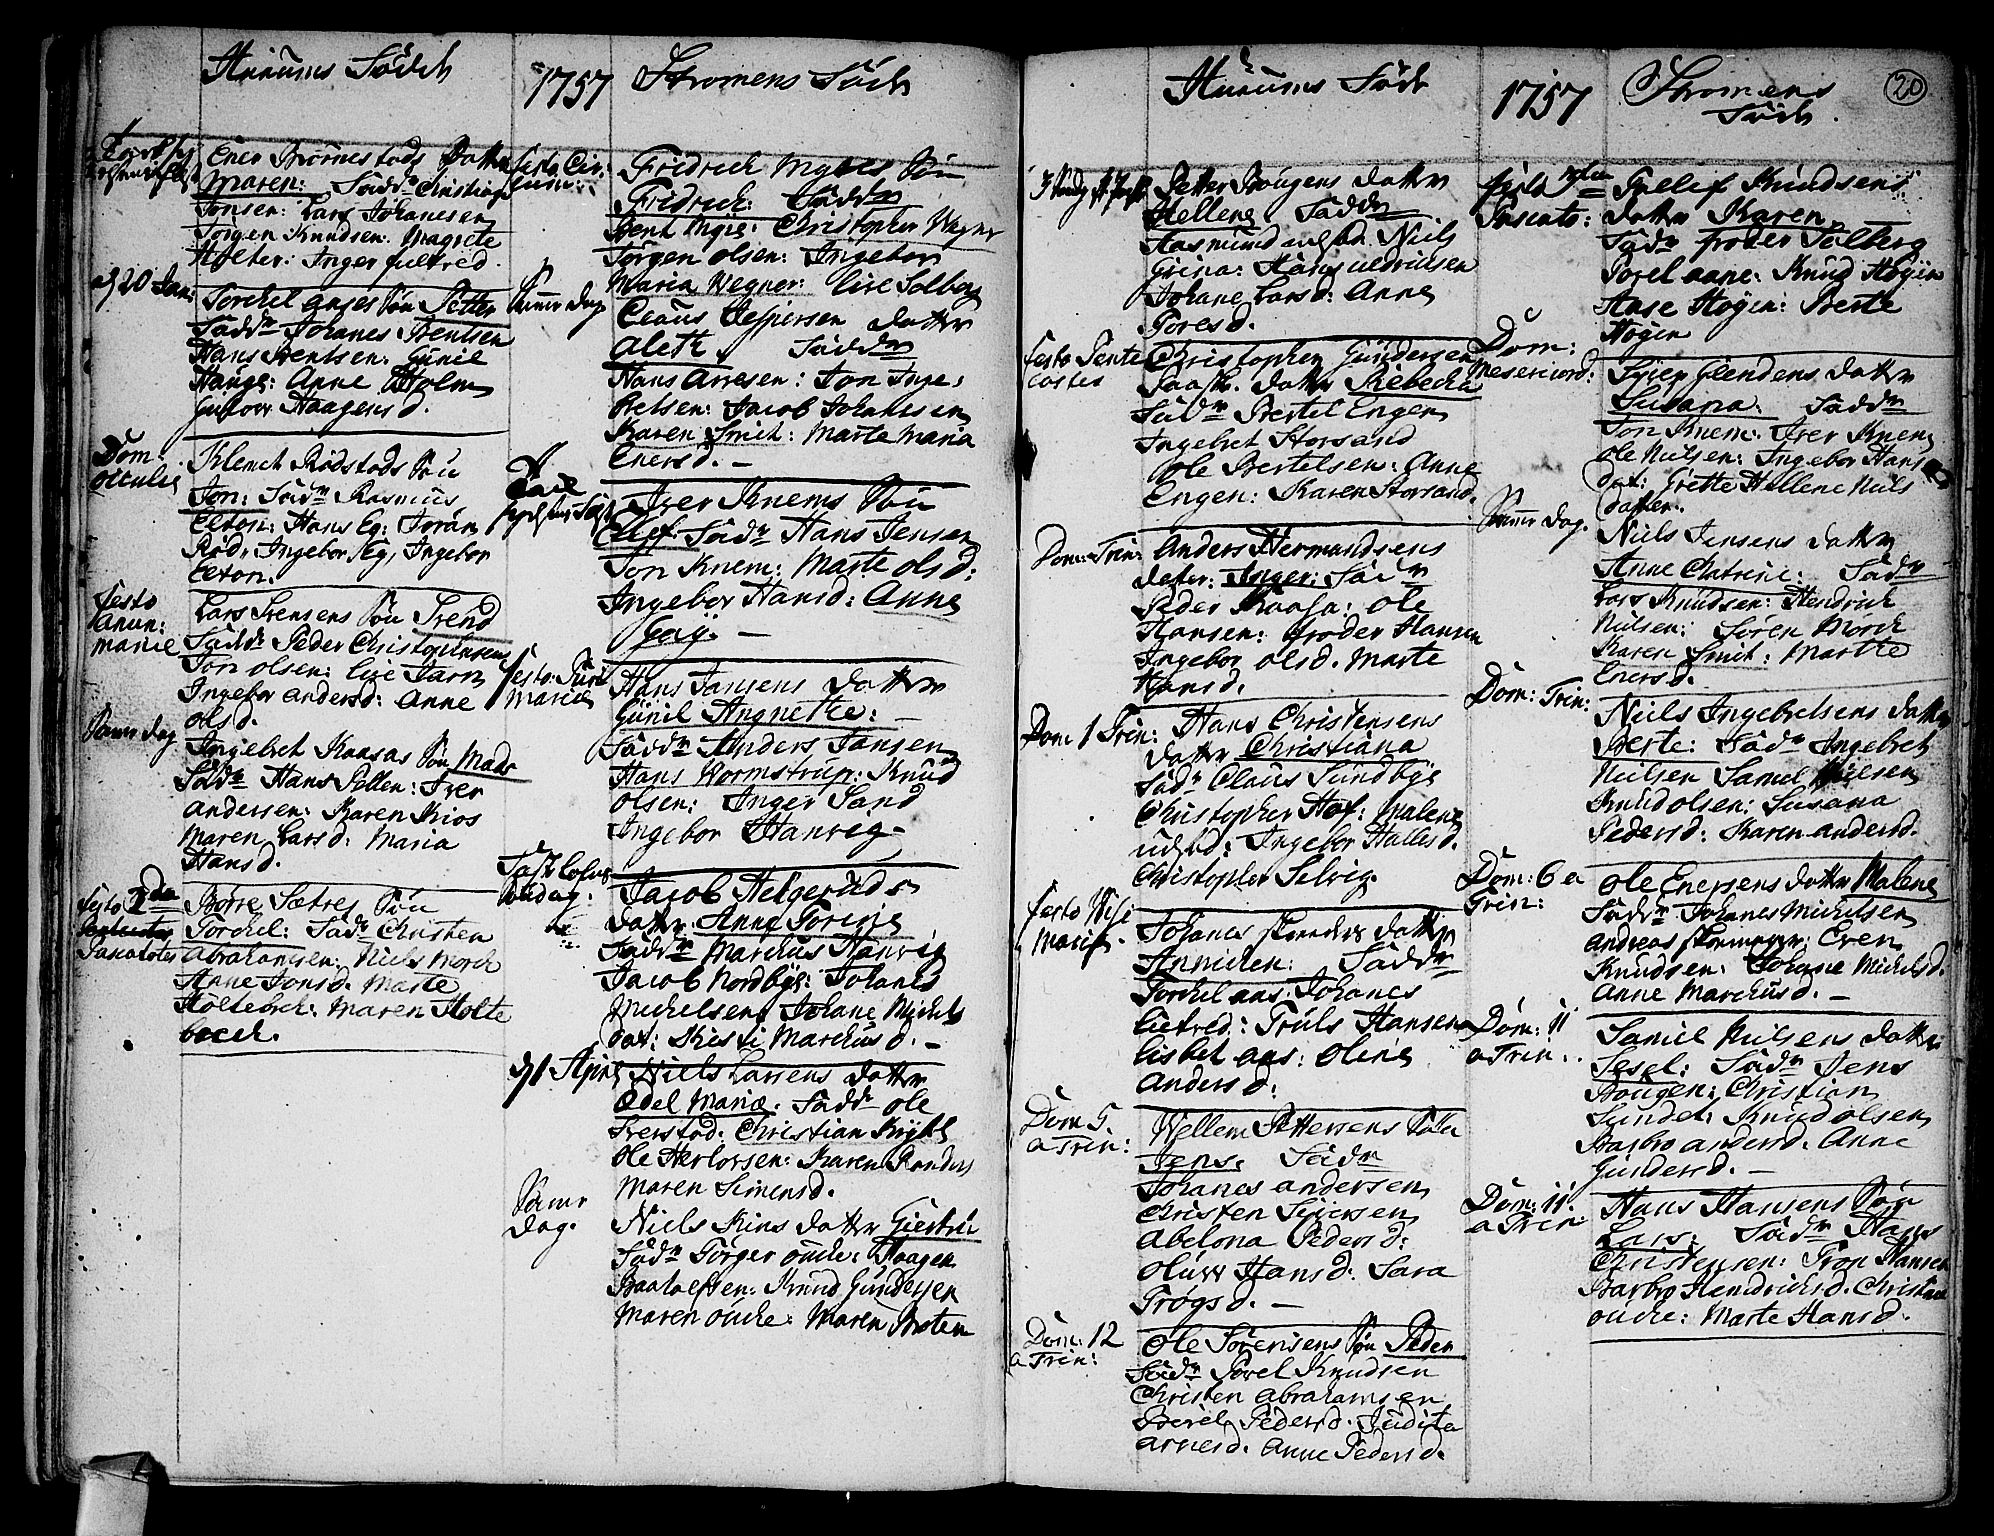 Huuums Födde
Ener Biørnestads Datter
Maren: Fadd: Christian
Jonsen: Lars Johanesen
Jørgen Knudsen: Magrete
Holter: Inger
d 20 Jan:
Torchel Søn Petter
Fadd: Johanes Trentsen
Hans Trentsen: Gunil
Hauge: Anne Holm
Haagensd.
Dom.
oculi
Klemet Rødstads Søn
Jon: Fadd: Rasmus
Elton: Hans Eg: Joran
Rød, Ingebor Eg, Ingebor
Elton.
Festo
Anun:
Mariæ
Lars Svensens Søn Svend
Fadd: Peder Christophersen
Jon Olsen: Lise
Ingebor Andersd: Anne
Olsd.
Samme dag
Ingebret Kaasas Søn Mads
Fadd: Hans Sellen: Iver
Andersen: Karen Kios
Maren Larsd: Maria
Hansd.
Festo 2da
Pascatos
Børre Sætres Søn
Torchel: Fadd: Christen
Abrahamsen: Niels Morch
Anne Jonsd. Marte
Holtebech: Maren Holte
bech.
1757
Stromens Födde
Festo Cir:
cum:
Fridrich Myres Søn
Fridrich: Fadd:
Bent Myre: Christopher Wegner
Jørgen Olsen: Ingebor
Maria Wegner: Lise Solberg
Samme dag
Claus Jespersen Datter
Aleth. Fadd:
Hans Arvesen: Jon Inge:
bretsen: Jacob Johanesen
Karen Smit: Marte Maria
Enersd. —
Iver Knems Søn
Elef: Fadd: Hans Jensen
Jon Knem: Marte Olsd:
Ingebor Hansd: Anne
—
Festo Puri
Mariæ
Hans Jansens Datter
Gunil Angnethe: —
Fadd: Anders Jansen
Hans Wormstrup: Knud
Olsen: Inger Sand
Ingebor Hanvig.
Jacob Helgeruds
Datter: Anne Torine
Fadd: Marchus Hanvig
Jacob Nordbye: Johanes
Michelsen: Johane Michels
dat: Kisti Marchusd. —
d 1 April
Niels Larsens Datter
Edel Maria: Fadd: Ole
Iverstad: Christian
Ole Herlofsen: Karen Randers
Maren Simensd.
Samme
Dag.
Niels Kins Datter Giertru
Fadd: Torger Ouche: Haagen
Knud Gundersen
Maren Ouche: Maren Braten
Huuums Födde
Petter Bougens Datter
Hellene Fadd:
Rasmund Niels
Grina: Hans Uldrichsen
Johane Larsd: Anne
Toresd.
Festo Pente
costes
Christopher Gundersen
Datter Rebecha
Fadd: Bertel Engen
Ingebret Storsand
Ole Bertelsen: Anne
Engen: Karen Storsand.
Dom: Trin:
Anders Hermandsens
Datter: Inger: Fadd:
Peder Kaasa: Ole
Hansen: Froder Hansen
Ingebor Olsd. Marte
Hansd.
Dom 1 Trin:
Hans Christensens
Datter Christiana
Fadd: Claus Sundbye
Christopher Hof: Malene
Ingebor Hallesd.
Christopher Selvig.
Festo Visi
Mariæ.
Johanes Datter
Annichen: Fadd:
Torchel Aas: Johanes
Truls Hansen
Lisbet Aas: Oline
Andersd:
Dom 5.
a Trin:
Wellem Pettersens Søn
Jens. Fadd:
Johanes Andersen
Christen Syversen
Abelona Pedersd:
Oluv Hansd. Sara
Trøgsd. —
Dom: 12
a Trin:
Ole Sørensens Søn Peder
Fadd: Povel Knudsen
Christen Abrahamsen
Berel Pedersd. Judita
Arnesd. Anne Pedersd.
1757
Stromens
Födde.
20
Festo
Pascatos:
Grelef Knudsens
Datter Karen
Fadd: Froder Solberg
Povel Aane: Knud Høgen
Aase Høgen: Berte
Høgen
Dom:
Misericord:
Syver Datter
Susana: Fadd:
Jon Knem: Iver Knem
Ole Nielsen: Ingebor Hans
dat: Grette Hellene Niels
datter.
Samme dag.
Niels Jensens Datter
Anne Chatrine: Fadd:
Lars Knudsen: Hendrich
Nielsen: Søren Morch
Karen Smit: Marthe
Enersd.
Dom: Trin:
Niels Ingebretsens Datter
Berte: Fadd: Ingebret
Nielsen Samuel Nielsen
Knud Olsen: Susana
Pedersd: Karen Andersd.
Dom: 6 a
Trin:
Ole Enersens Datter Malene
Fadd: Johanes Michelsen
Andreas Even
Knudsen: Johane Michelsd.
Anne Marchusd. —
Dom: 11
a Trin:
Samuel Nielsens Datter
Sesel: Fadd: Jens
Bougen: Christian
Sundet: Knud Olsen
Barbro Andersd. Anne
Gundersd. —
Dom: 11.
a Trin:
Hans Hansens Søn
Lars: Fadd: Hans
Christensen: Tron Hansen
Barbro Hendrichsd. Christine
Ouche: Marte Hansd.